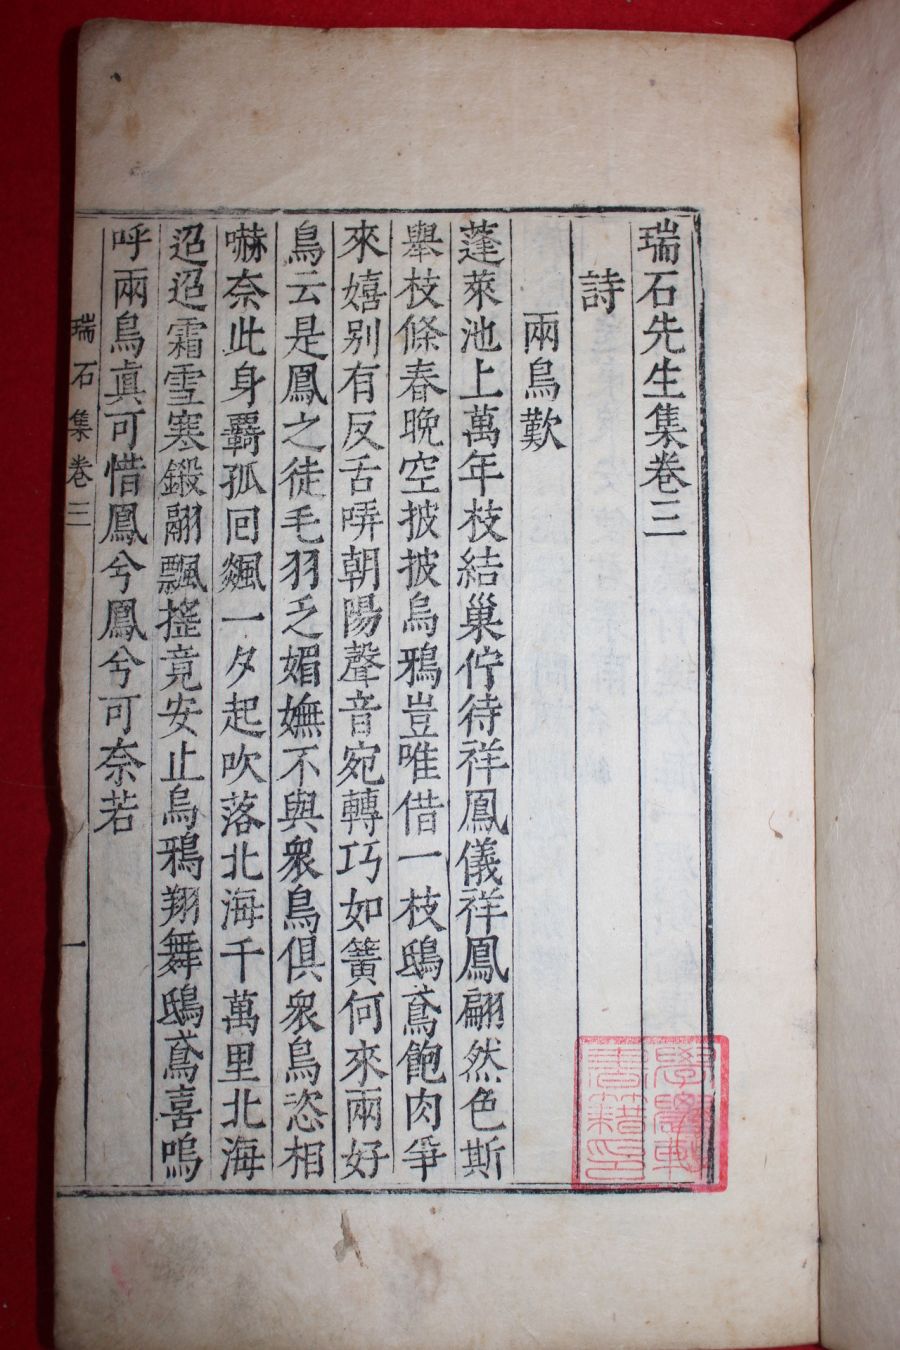 瑞石先生集卷三
詩
兩鳥歎
蓬萊池上萬年枝結巢佇待祥鳳儀祥鳳翩然色斯
舉枝條春晩空披披烏鴉豈唯借一枝鴟鳶飽肉爭
來嬉别有反舌哢朝陽聲音宛轉巧如簧何來兩好
鳥云是鳳之徒毛羽乏媚嫵不與衆鳥俱衆鳥恣相
嚇奈此身羇孤囘飇一夕起吹落北海千萬里北海
迢迢霜雪寒鍛翮飄搖竟安止烏鴉翔舞鴟鳶喜嗚
呼兩鳥眞可惜鳳兮鳳兮可奈若
瑞石集卷三
一